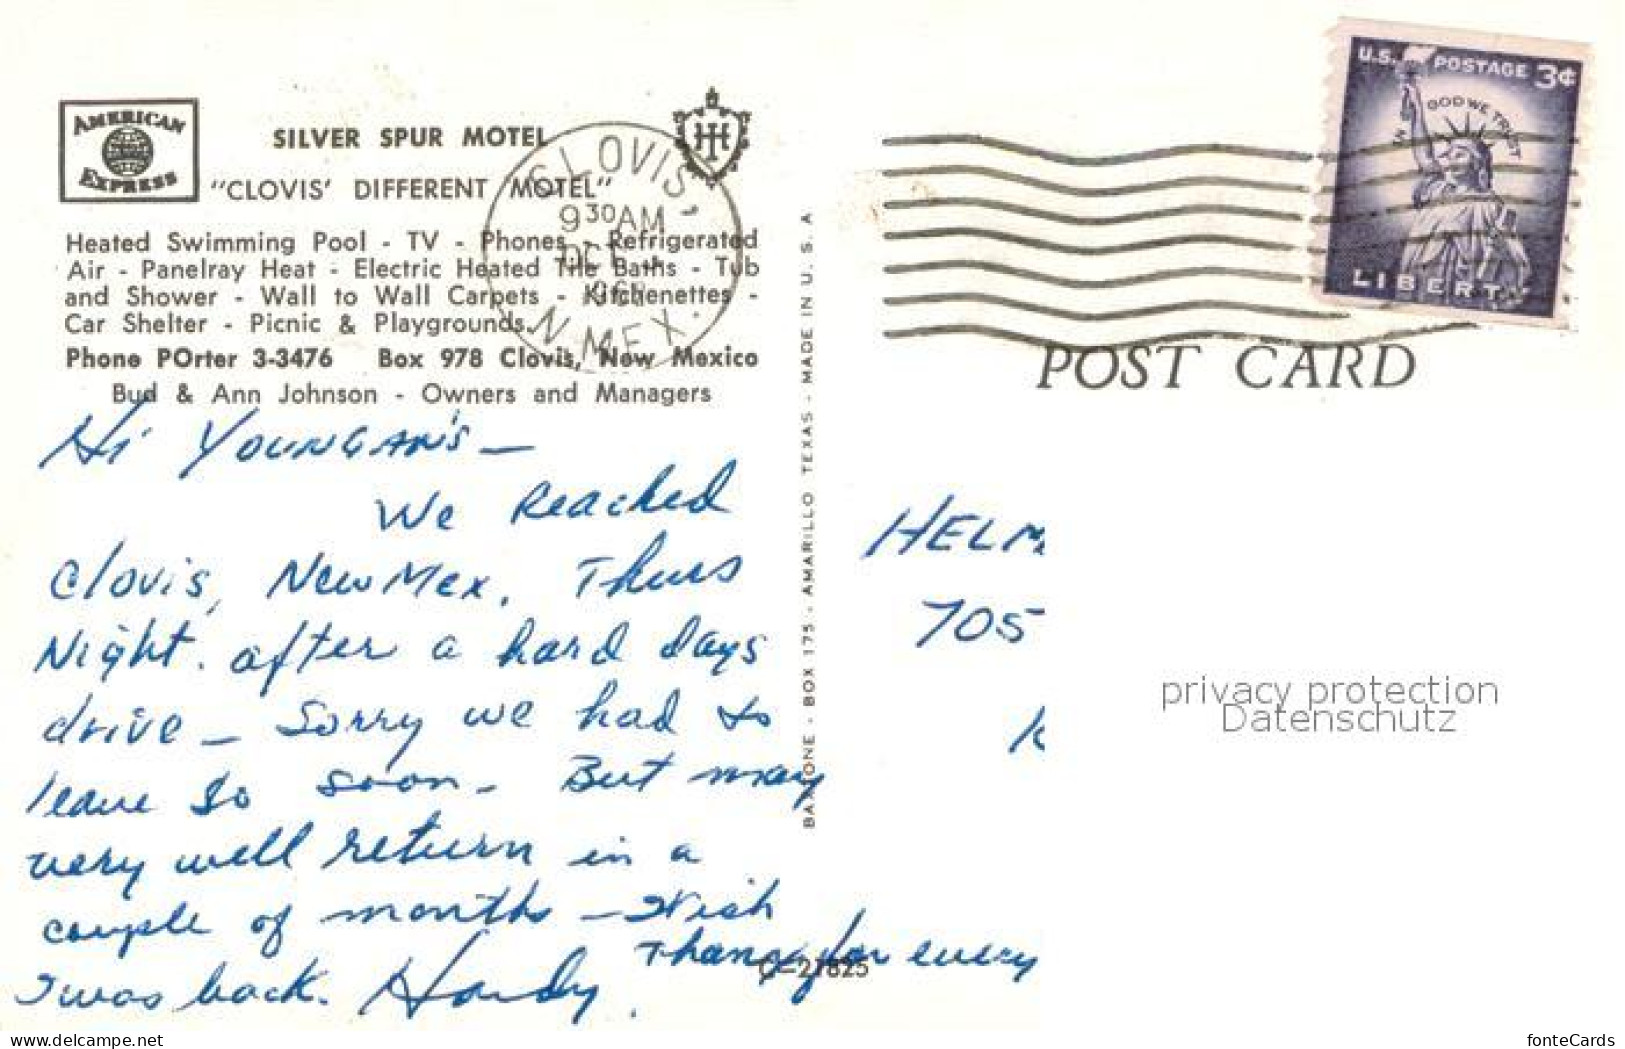 AMERICAN
EXPRESS
SILVER SPUR MOTEL
"CLOVIS' DIFFERENT MOTEL"
Heated Swimming Pool - TV - Phones - Refrigerated
Air - Panelray Heat - Electric Heated Tile Baths - Tub
and Shower - Wall to Wall Carpets - Kitchenettes -
Car Shelter - Picnic & Playgrounds.
Phone POrter 3-3476 Box 978 Clovis, New Mexico
Bud & Ann Johnson - Owners and Managers
CLOVIS,
9 30 AM
N. MEX.
Hi YOUNGAN'S —
We Reached
Clovis, New Mex. Thurs
Night. after a hard days
drive — Sorry we had to
leave so soon - But may
very well return in a
couple of months — Wish
I was back. Handy.
Thanx for every
C-21825
BAXTONE - BOX 175 - AMARILLO TEXAS - MADE IN U. S. A
U.S. POSTAGE 3¢
IN GOD WE TRUST
LIBERTY
POST CARD
HELM
705
K
privacy protection
Datenschutz
www.delcampe.net
fonteCards